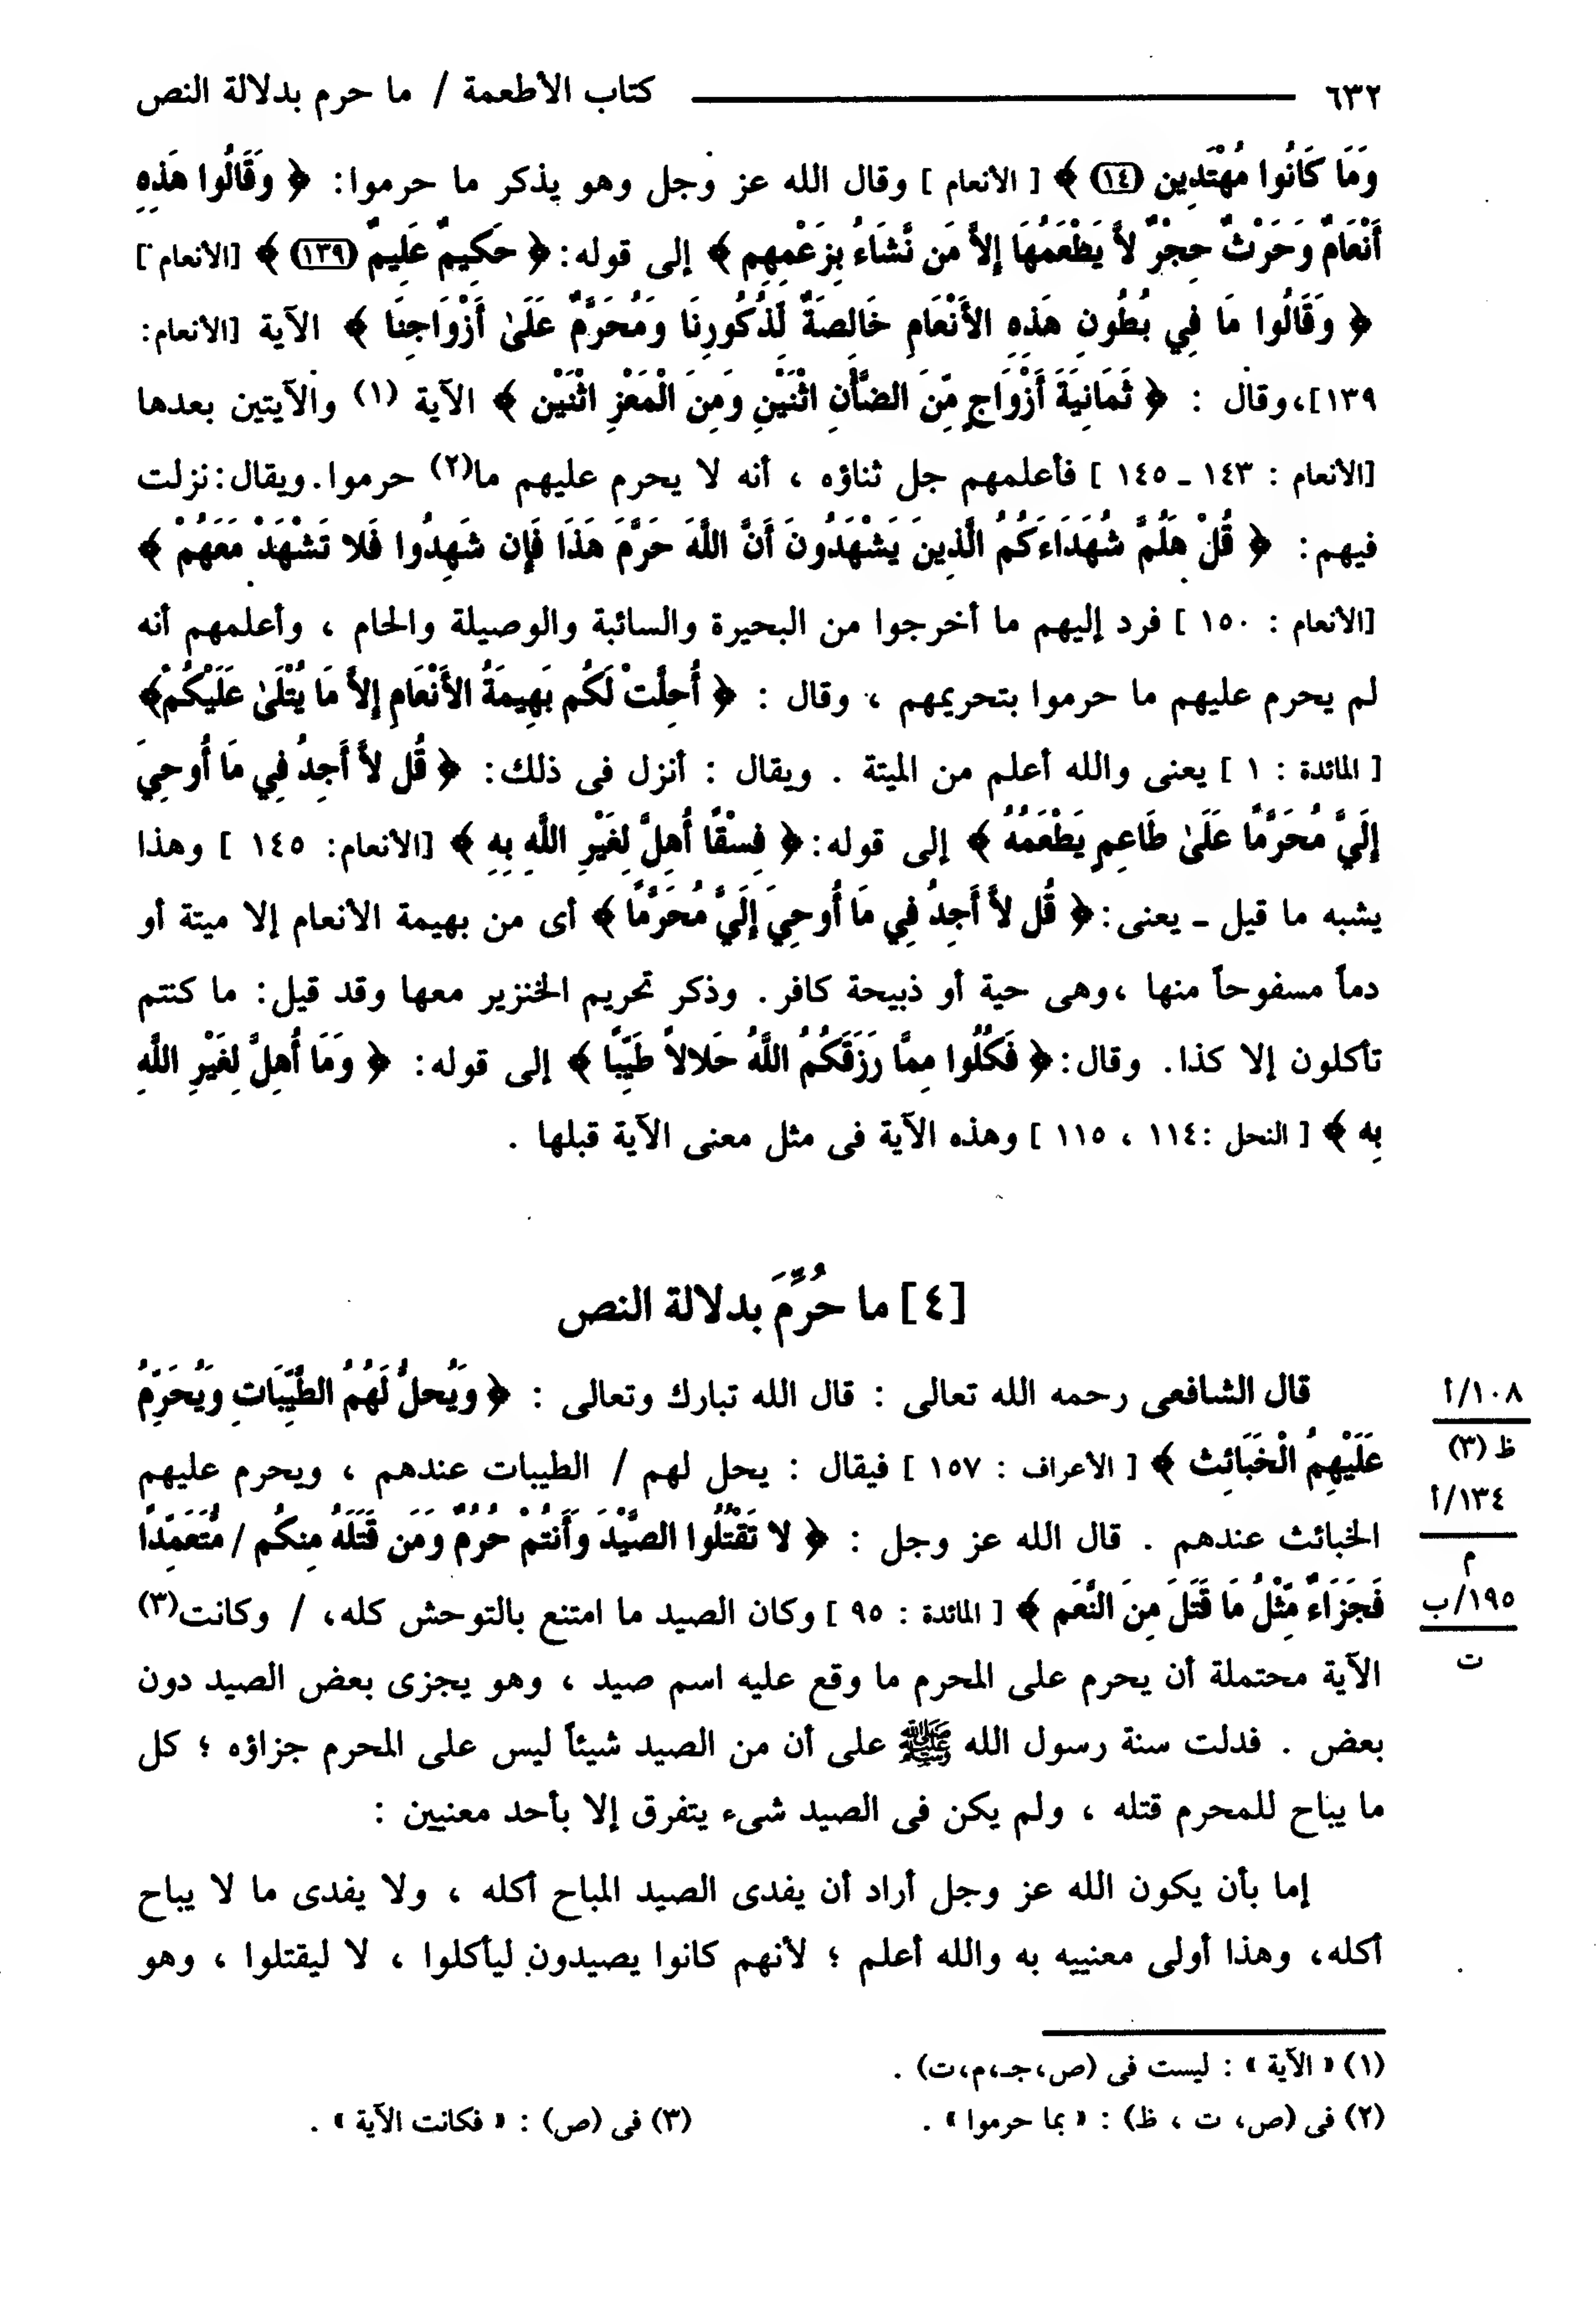 ٦٣٢ كتاب الأطعمة / ما حرم بدلالة النص
وَمَا كَانُوا مُهْتَدِين (١٤) ﴾ [ الأنعام ] وقال الله عز وجل وهو يذكر ما حرموا: ﴿ وَقَالُوا هَذِهِ
أَنْعَامٌ وَحَرْثٌ حِجْرٌ لاَّ يَطْعَمُهَا إِلاَّ مَن نَّشَاءُ بِزَعْمِهِم ﴾ إلى قوله: ﴿ حَكِيمٌ عَلِيمٌ (١٣٩) ﴾ [الأنعام ]
﴿ وَقَالُوا مَا فِي بُطُونِ هَذِهِ الأَنْعَامِ خَالِصَةٌ لِّذُكُورِنَا وَمُحَرَّمٌ عَلَىٰ أَزْوَاجِنَا ﴾ الآية [الأنعام:
١٣٩]، وقال : ﴿ ثَمَانِيَةَ أَزْوَاجٍ مِّنَ الضَّأْنِ اثْنَيْنِ وَمِنَ الْمَعْزِ اثْنَيْن ﴾ الآية (١) والآيتين بعدها
[الأنعام : ١٤٣ ـ ١٤٥ ] فأعلمهم جل ثناؤه ، أنه لا يحرم عليهم ما(٢) حرموا. ويقال: نزلت
فيهم: ﴿ قُلْ هَلُمَّ شُهَدَاءَكُمُ الَّذِينَ يَشْهَدُونَ أَنَّ اللَّهَ حَرَّمَ هَذَا فَإِن شَهِدُوا فَلا تَشْهَدْ مَعَهُمْ ﴾
[الأنعام : ١٥٠ ] فرد إليهم ما أخرجوا من البحيرة والسائبة والوصيلة والحام ، وأعلمهم أنه
لم يحرم عليهم ما حرموا بتحريمهم ، وقال : ﴿ أُحِلَّتْ لَكُم بَهِيمَةُ الأَنْعَامِ إِلاَّ مَا يُتْلَىٰ عَلَيْكُمْ﴾
[ المائدة : ١ ] يعنى والله أعلم من الميتة . ويقال : أنزل فى ذلك: ﴿ قُل لاَّ أَجِدُ فِي مَا أُوحِيَ
إِلَيَّ مُحَرَّمًا عَلَىٰ طَاعِمٍ يَطْعَمُهُ ﴾ إلى قوله: ﴿ فِسْقًا أُهِلَّ لِغَيْرِ اللَّهِ بِهِ ﴾ [الأنعام: ١٤٥ ] وهذا
يشبه ما قيل ـ يعنى: ﴿ قُل لاَّ أَجِدُ فِي مَا أُوحِيَ إِلَيَّ مُحَرَّمًا ﴾ أى من بهيمة الأنعام إلا ميتة أو
دماً مسفوحاً منها ،وهى حية أو ذبيحة كافر. وذكر تحريم الخنزير معها وقد قيل: ما كنتم
تأكلون إلا كذا. وقال: ﴿ فَكُلُوا مِمَّا رَزَقَكُمُ اللَّهُ حَلالاً طَيِّبًا ﴾ إلى قوله: ﴿ وَمَا أُهِلَّ لِغَيْرِ اللَّهِ
بِه ﴾ [ النحل :١١٤ ، ١١٥ ] وهذه الآية فى مثل معنى الآية قبلها .
[٤] ما حُرِّمَ بدلالة النص
قال الشافعى رحمه الله تعالى : قال الله تبارك وتعالى : ﴿ وَيُحِلُّ لَهُمُ الطَّيِّبَاتِ وَيُحَرِّمُ
١٠٨/أ
عَلَيْهِمُ الْخَبَائِث ﴾ [ الأعراف : ١٥٧ ] فيقال : يحل لهم / الطيبات عندهم ، ويحرم عليهم
ظ (٣)
١٣٤/أ
الخبائث عندهم . قال الله عز وجل : ﴿ لا تَقْتُلُوا الصَّيْدَ وَأَنتُمْ حُرُمٌ وَمَن قَتَلَهُ مِنكُم / مُّتَعَمِّدًا
م
فَجَزَاءٌ مِّثْلُ مَا قَتَلَ مِنَ النَّعَم ﴾ [ المائدة : ٩٥ ] وكان الصيد ما امتنع بالتوحش كله، / وكانت(٣)
١٩٥/ب
ت
الآية محتملة أن يحرم على المحرم ما وقع عليه اسم صيد ، وهو يجزى بعض الصيد دون
بعض . فدلت سنة رسول الله ﷺ على أن من الصيد شيئاً ليس على المحرم جزاؤه ؛ كل
ما يباح للمحرم قتله ، ولم يكن فى الصيد شىء يتفرق إلا بأحد معنيين :
إما بأن يكون الله عز وجل أراد أن يفدى الصيد المباح أكله ، ولا يفدى ما لا يباح
أكله، وهذا أولى معنييه به والله أعلم ؛ لأنهم كانوا يصيدون ليأكلوا ، لا ليقتلوا ، وهو
(١) « الآية » : ليست فى (ص،جـ،م،ت) .
(٢) فى (ص، ت ، ظ) : « بما حرموا » . (٣) فى (ص) : « فكانت الآية » .